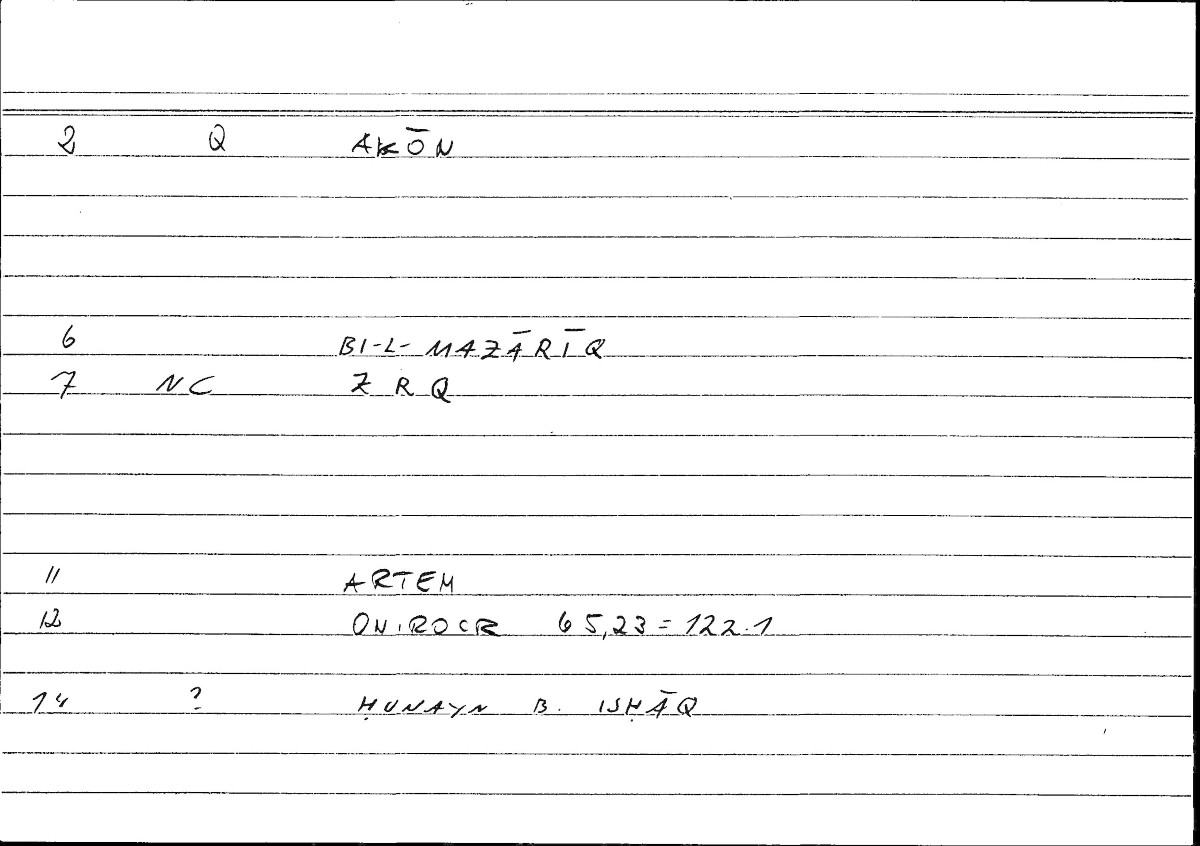 2 Q AKŌN
6 BI-L-MAZĀRĪQ
7 NC ZRQ
11 ARTEM
12 ONIROCR 65,23=122.1
14 ? ḤUNAYN B. ISḤĀQ